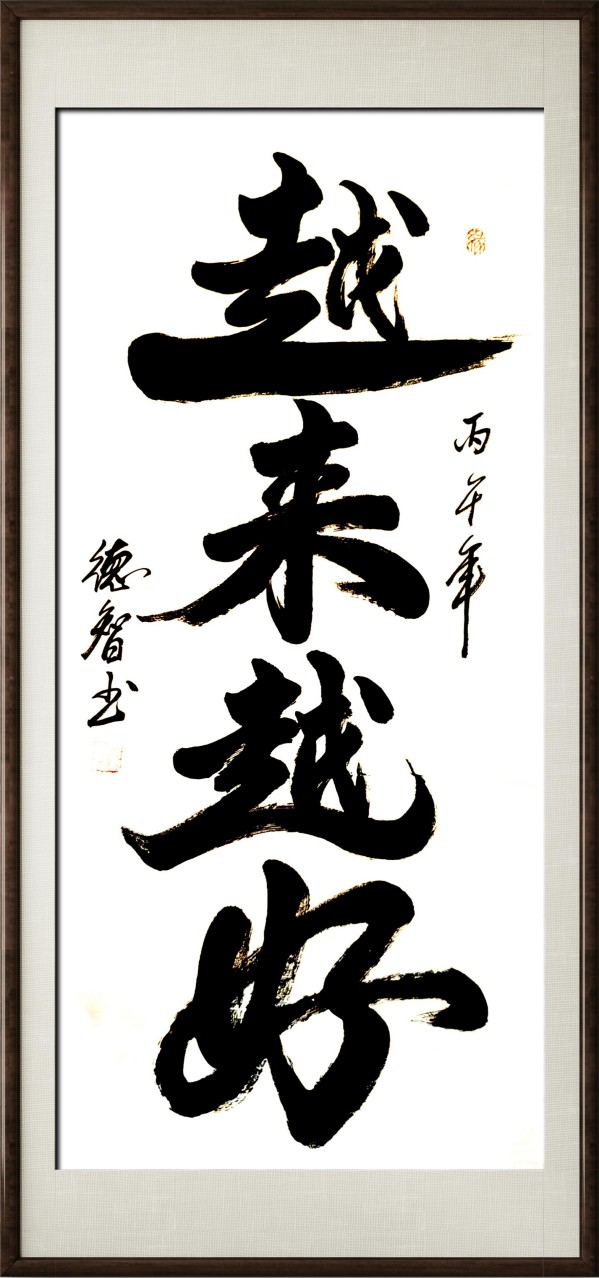 越来越好
丙午年
德智书